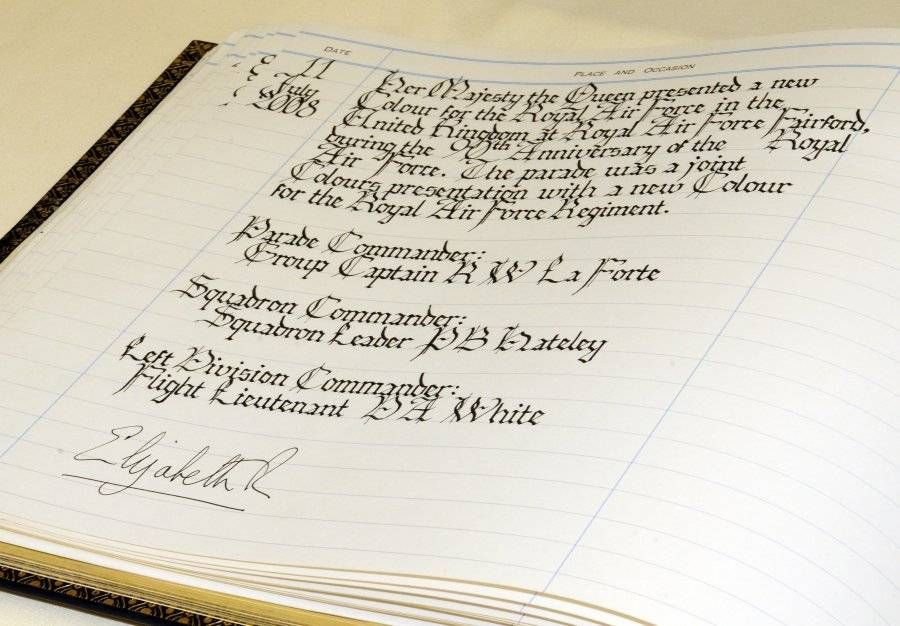 DATE
PLACE AND OCCASION
11
July
2008
Her Majesty the Queen presented a new
Colour for the Royal Air Force in the
United Kingdom at Royal Air Force Fairford,
during the 90th Anniversary of the Royal
Air Force. The parade was a joint
Colours presentation with a new Colour
for the Royal Air Force Regiment.
Parade Commander:
Group Captain R W La Forte
Squadron Commander:
Squadron Leader P B Hateley
Left Division Commander:
Flight Lieutenant D A White
Elizabeth R